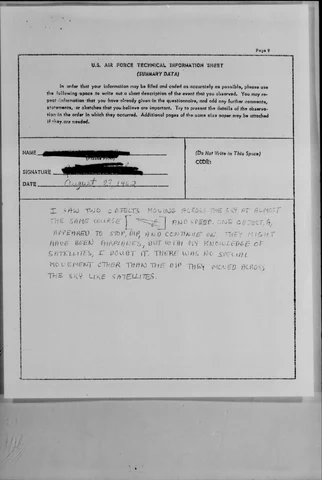 Page 9
U.S. AIR FORCE TECHNICAL INFORMATION SHEET
(SUMMARY DATA)
In order that your information may be filed and coded as accurately as possible, please use
the following space to write out a short description of the event that you observed. You may re-
peat information that you have already given in the questionnaire, and add any further comments,
statements, or sketches that you believe are important. Try to present the details of the observa-
tion in the order in which they occurred. Additional pages of the same size paper may be attached
if they are needed.
NAME
(Do Not Write in This Space)
CODE:
SIGNATURE
DATE August
I SAW TWO OBJECTS MOVING ACROSS THE SKY AT ALMOST
THE SAME COURSE [ ] AND SPEED. ONE OBJECT,
APPEARED TO STOP, DIP, AND CONTINUE ON. THEY MIGHT
HAVE BEEN AIRPLANES, BUT WITH MY KNOWLEDGE OF
SATELLITES, I DOUBT IT. THERE WAS NO SPECIAL
MOVEMENT OTHER THAN THE DIP. THEY MOVED ACROSS
THE SKY LIKE SATELLITES.